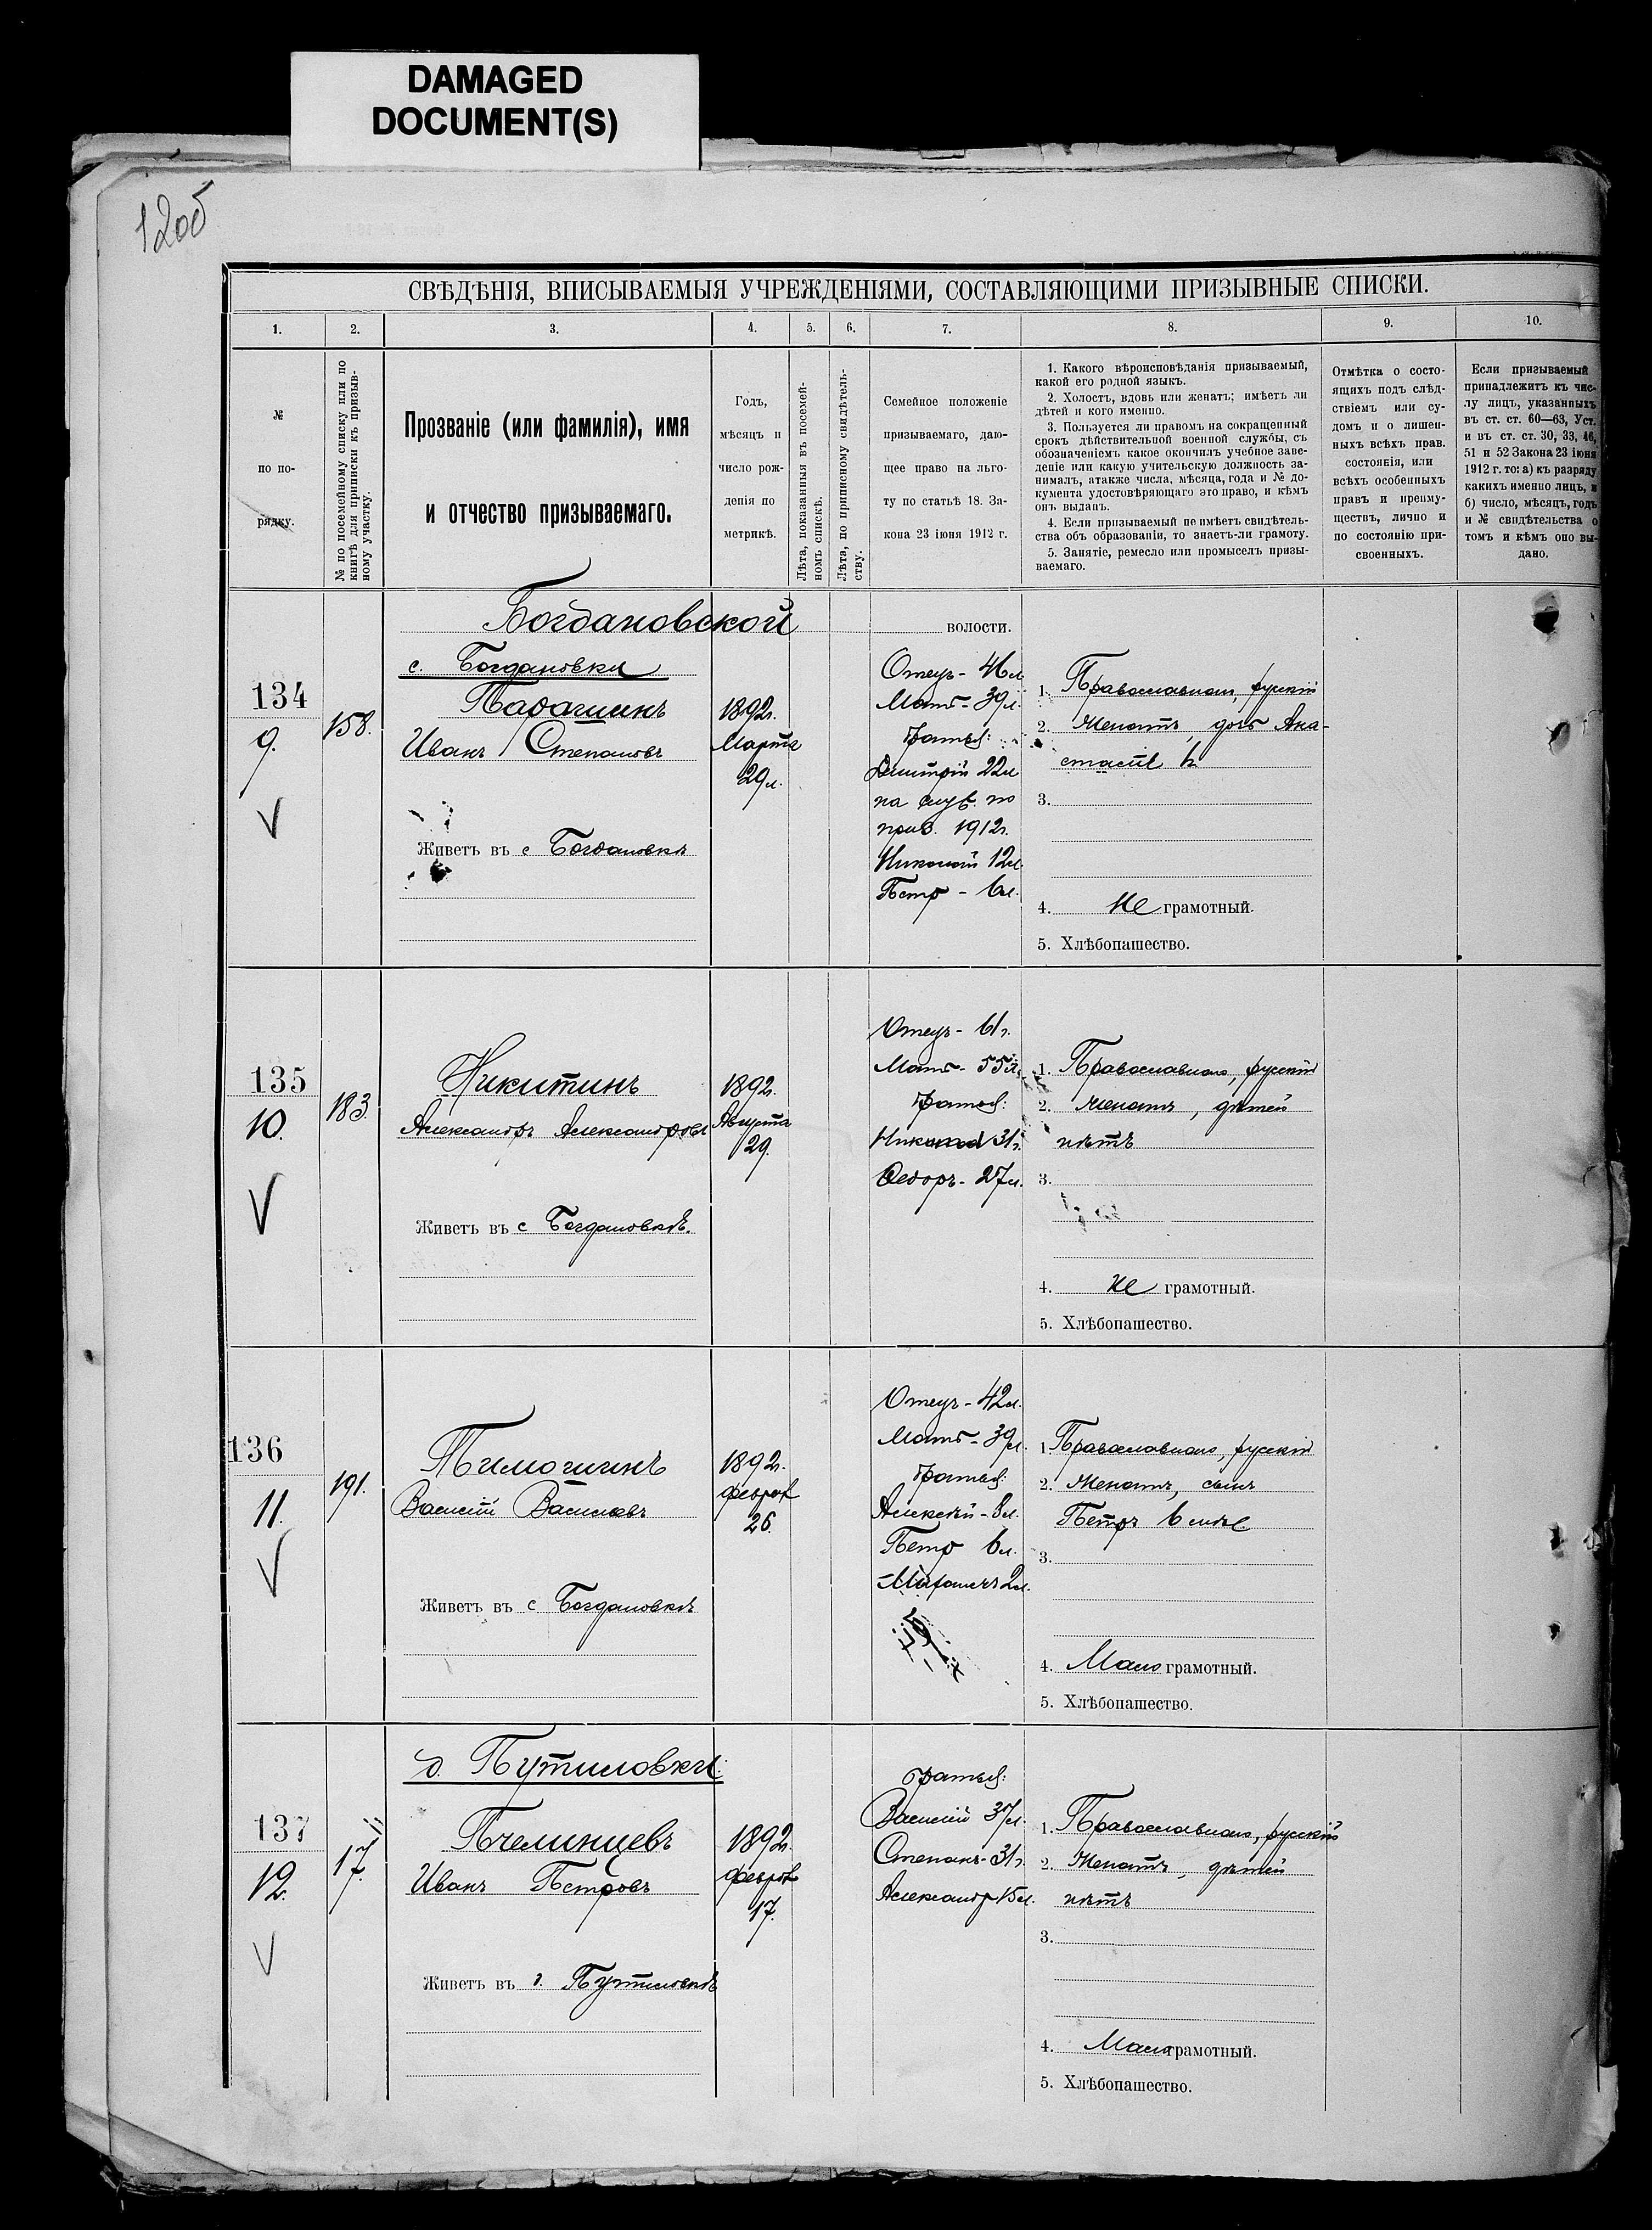 DAMAGED
DOCUMENT(S)
12об
СВѢДѢНІЯ, ВПИСЫВАЕМЫЯ УЧРЕЖДЕНІЯМИ, СОСТАВЛЯЮЩИМИ ПРИЗЫВНЫЕ СПИСКИ.
1. 2. 3. 4. 5. 6. 7. 8. 9. 10.
№
по по-
рядку.
№ по посемейному списку или по
книгѣ для приписки къ призыв-
ному участку.
Прозваніе (или фамилія), имя
и отчество призываемаго.
Годъ,
мѣсяцъ и
число рож-
денія по
метрикѣ.
Лѣта, показанныя въ посемей-
номъ спискѣ.
Лѣта, по приписному свидѣтель-
ству.
Семейное положеніе
призываемаго, даю-
щее право на льго-
ту по статьѣ 18. За-
кона 23 іюня 1912 г.
1. Какого вѣроисповѣданія призываемый,
какой его родной языкъ.
2. Холостъ, вдовъ или женатъ; имѣетъ ли
дѣтей и кого именно.
3. Пользуется ли правомъ на сокращенный
срокъ дѣйствительной военной службы, съ
обозначеніемъ какое окончилъ учебное заве-
деніе или какую учительскую должность за-
нималъ, атакже числа, мѣсяца, года и № до-
кумента удостовѣряющаго это право, и кѣмъ
онъ выданъ.
4. Если призываемый не имѣетъ свидѣтель-
ства объ образованіи, то знаетъ-ли грамоту.
5. Занятіе, ремесло или промыселъ призы-
ваемаго.
Отмѣтка о состо-
ящихъ подъ слѣд-
ствіемъ или су-
домъ и о лишен-
ныхъ всѣхъ прав.
состоянія, или
всѣхъ особенныхъ
правъ и преиму-
ществъ, лично и
по состоянію при-
своенныхъ.
Если призываемый
принадлежитъ къ чис-
лу лицъ, указанныхъ
въ ст. ст. 60—63, Уст.
и въ ст. ст. 30, 33, 46,
51 и 52 Закона 23 іюня
1912 г. то: а) къ разряду
какихъ именно лицъ, и
б) число, мѣсяцъ, годъ
и № свидѣтельства о
томъ и кѣмъ оно вы-
дано.
Богдановской волости.
с. Богдановки
134
9.
158.
Иванъ Степановъ
Живетъ въ с Богдановкѣ
1892г.
Марта
29
Отецъ - 46л
Мать - 39л.
братья:
Дмитрій 22л
на служ. по
приз. 1912г.
Николай 12л.
Петр - 6л.
1. Православнаго, русскій
2. Женатъ, дочь Ана-
3.
4. Не грамотный.
5. Хлѣбопашество.
135
10.
183.
Никитинъ
Александръ Александровъ
Живетъ въ с Богдановкѣ.
1892г.
Августа
29.
Отецъ - 61г.
Мать - 55л.
братья:
31г.
Ѳедоръ - 27л.
1. Православнаго, русскій
2. Женатъ, дѣтей
нѣтъ
3.
4. не грамотный.
5. Хлѣбопашество.
136
11.
191.
Тимошинъ
Василій Васильевъ
Живетъ въ с Богдановкѣ
1892г.
феврал
26.
Отецъ - 42л.
Мать - 39л.
братья:
Алексѣй - 8л.
Петр 6л.
2л.
1. Православнаго, русскій
2. Женатъ, сынъ
Петръ
3.
4. Мало грамотный.
5. Хлѣбопашество.
д. Путиловки.
137
12.
17.
Пчелинцевъ
Иванъ Петровъ
Живетъ въ д. Путиловкѣ
1892г.
феврал
17.
братья:
Василій 37л.
Степанъ - 31г.
Александр 15л.
1. Православнаго, русскій
2. Женатъ, дѣтей
нѣтъ
3.
4. Мало грамотный.
5. Хлѣбопашество.